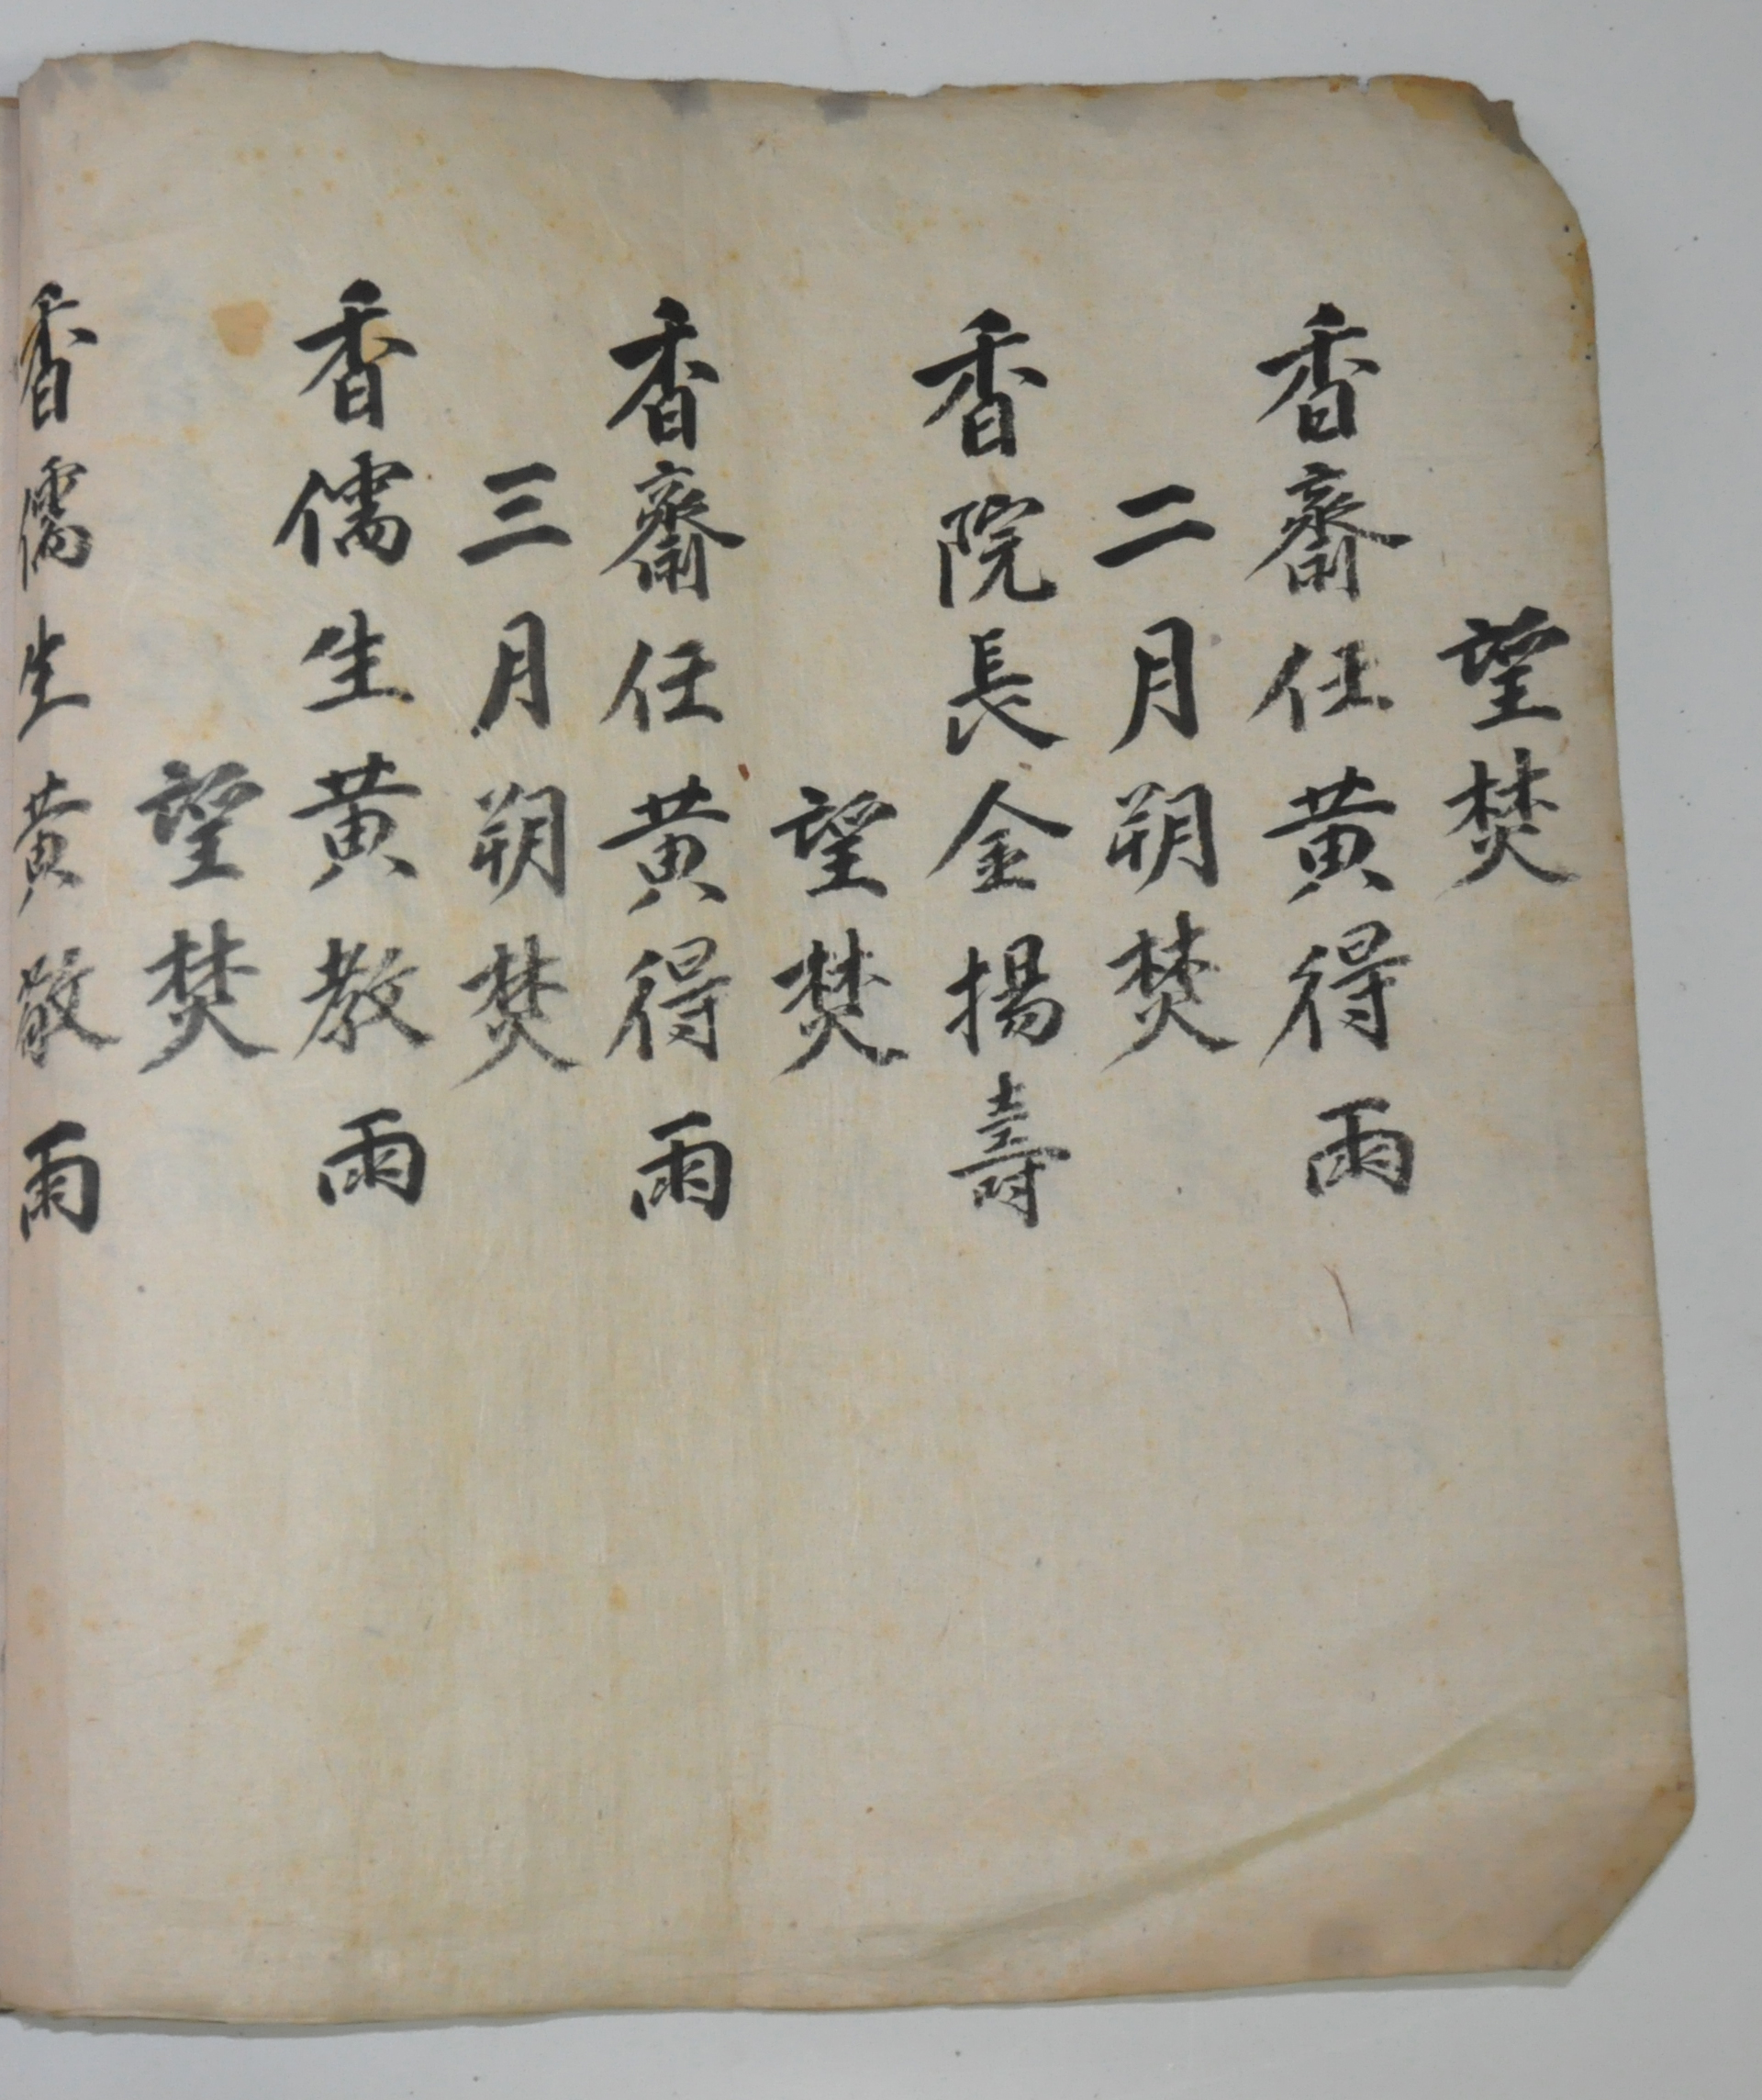 望焚
香齋任黃得雨
二月朔焚
香院長金揚壽
望焚
香齋任黃得雨
三月朔焚
香儒生黃教雨
望焚
香儒生黃敬雨